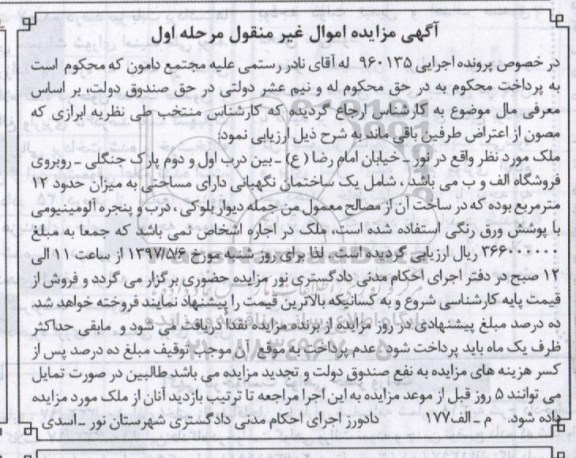 آگهی مزایده اموال غیر منقول مرحله اول
در خصوص پرونده اجرایی ۹۶۰۱۳۵ له آقای نادر رستمی علیه مجتمع دامون که محکوم است
به پرداخت محکوم به در حق محکوم له و نیم عشر دولتی در حق صندوق دولت، بر اساس
معرفی مال موضوع به کارشناس ارجاع گردیده که کارشناس منتخب طی نظریه ابرازی که
مصون از اعتراض طرفین باقی مانده به شرح ذیل ارزیابی نمود:
ملک مورد نظر واقع در نور - خیابان امام رضا (ع) - بین درب اول و دوم پارک جنگلی - روبروی
فروشگاه الف و ب می باشد ، شامل یک ساختمان نگهبانی دارای مساحتی به میزان حدود ۱۲
مترمربع بوده که در ساخت آن از مصالح معمول من جمله دیوار بلوکی ، درب و پنجره آلومینیومی
با پوشش ورق رنگی استفاده شده است، ملک در اجاره اشخاص نمی باشد که جمعا به مبلغ
۳۶۶۰۰۰۰۰۰ ریال ارزیابی گردیده است. لذا برای روز شنبه مورخ ۱۳۹۷/۵/۶ از ساعت ۱۱ الی
۱۲ صبح در دفتر اجرای احکام مدنی دادگستری نور مزایده حضوری برگزار می گردد و فروش از
قیمت پایه کارشناسی شروع و به کسانیکه بالاترین قیمت را پیشنهاد نمایند فروخته خواهد شد.
ده درصد مبلغ پیشنهادی در روز مزایده از برنده مزایده نقدا دریافت می شود و مابقی حداکثر
ظرف یک ماه باید پرداخت شود. عدم پرداخت به موقع آن موجب توقیف مبلغ ده درصد پس از
کسر هزینه های مزایده به نفع صندوق دولت و تجدید مزایده می باشد طالبین در صورت تمایل
می توانند ۵ روز قبل از موعد مزایده به این اجرا مراجعه تا ترتیب بازدید آنان از ملک مورد مزایده
داده شود. م - الف۱۷۷ دادورز اجرای احکام مدنی دادگستری شهرستان نور - اسدی